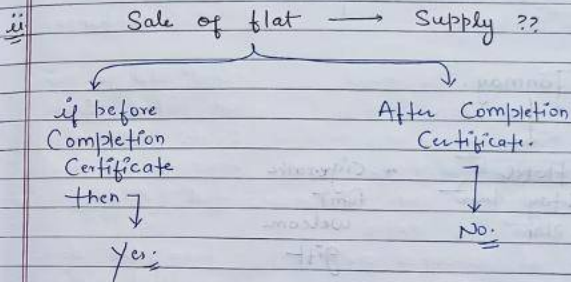 ii Sale of flat → Supply ??
if before
Completion
Certificate
then
Yes.
After Completion
Certificate.
No.